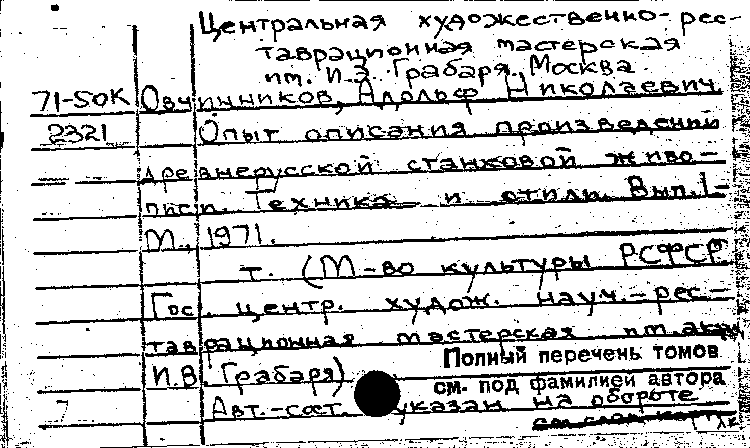 Центральная художественно-рес-
таврационная мастерская
им. И.Э. Грабаря, Москва.
71-50К Овчинников, Адольф Николаевич.
2321 Опыт описания произведений
древнерусской станковой живо-
писи. Техника и стили. Вып.1-
М., 1971.
т. (М-во культуры РСФСР
Гос. центр. худож. науч.-рес-
таврационная мастерская им. акад.
И.Э. Грабаря)
Полный перечень томов
см. под фамилией автора
Авт.-сост. указан на обороте
7